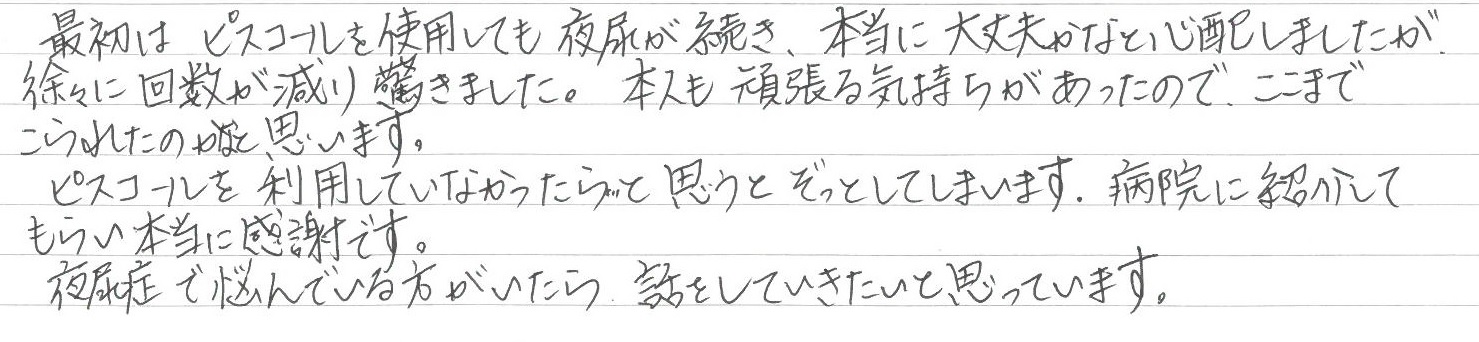 最初は ピスコールを使用しても 夜尿が続き、本当に大丈夫かなと心配しましたが、
徐々に回数が減り驚きました。本人も頑張る気持ちがあったので、ここまで
こられたのかなと思います。
ピスコールを利用していなかったら…と思うとぞっとしてしまいます。病院に紹介して
もらい本当に感謝です。
夜尿症で悩んでいる方がいたら、話をしていきたいと思っています。